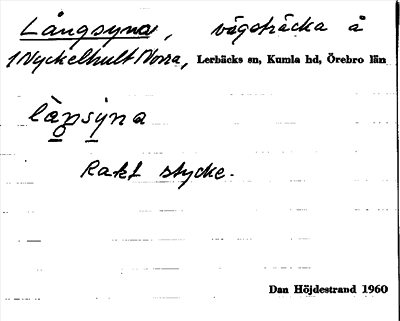 Långsyna, vägsträcka å
1 Nyckelhult Norra, Lerbäcks sn, Kumla hd, Örebro län
làŋsýna
Rakt stycke.
Dan Höjdestrand 1960